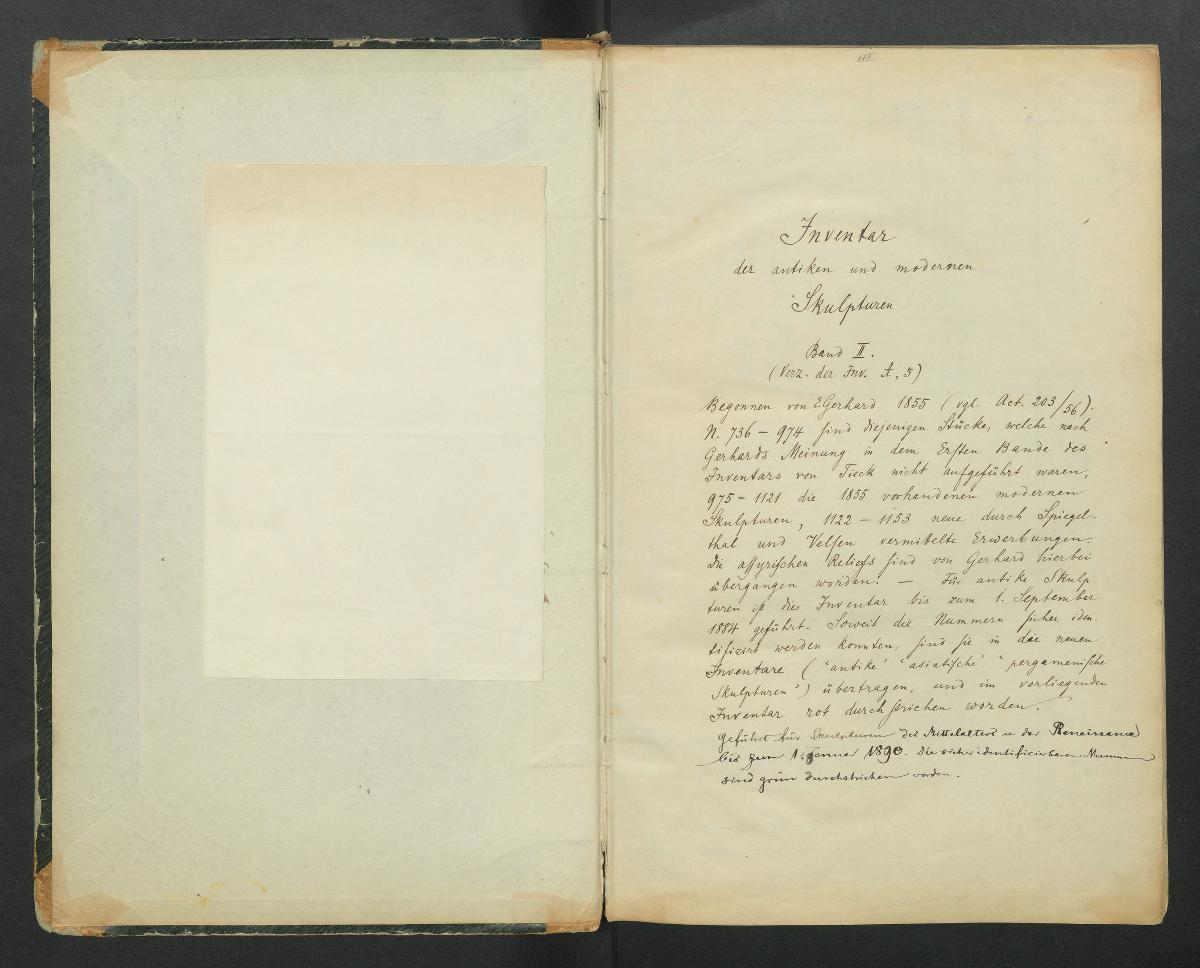 III
Inventar
der antiken und modernen
Skulpturen
Band II.
(Verz. der Inv. A, 5)
Begonnen von EGerhard 1855 (vgl. Act. 203/56).
N. 736 – 974 sind diejenigen Stücke, welche nach
Gerhards Meinung in dem Ersten Bande des
Inventars von Tieck nicht aufgeführt waren,
975 – 1121 die 1855 vorhandenen modernen
Skulpturen, 1122 – 1153 neue durch Spiegel-
thal und Velsen vermittelte Erwerbungen.
Die assyrischen Reliefs sind von Gerhard hierbei
übergangen worden. — Für antike Skulp-
turen ist dies Inventar bis zum 1. September
1884 geführt. Soweit die Nummern sicher iden-
tifizirt werden konnten, sind sie in die neuen
Inventare ("antike" "asiatische" "pergamenische
Skulpturen") übertragen, und im vorliegenden
Inventar rot durchstrichen worden.
Geführt für Skulpturen des Mittelalters u der Renaissance
bis zum 1. Januar 1890. Die sicher identificirbaren Nummern
sind grün durchstrichen worden.